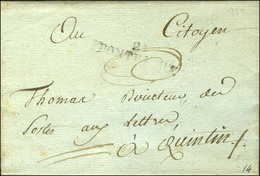 Au Citoyen
21
Thomas Directeur des
Postes aux Lettres
à Quintin
14